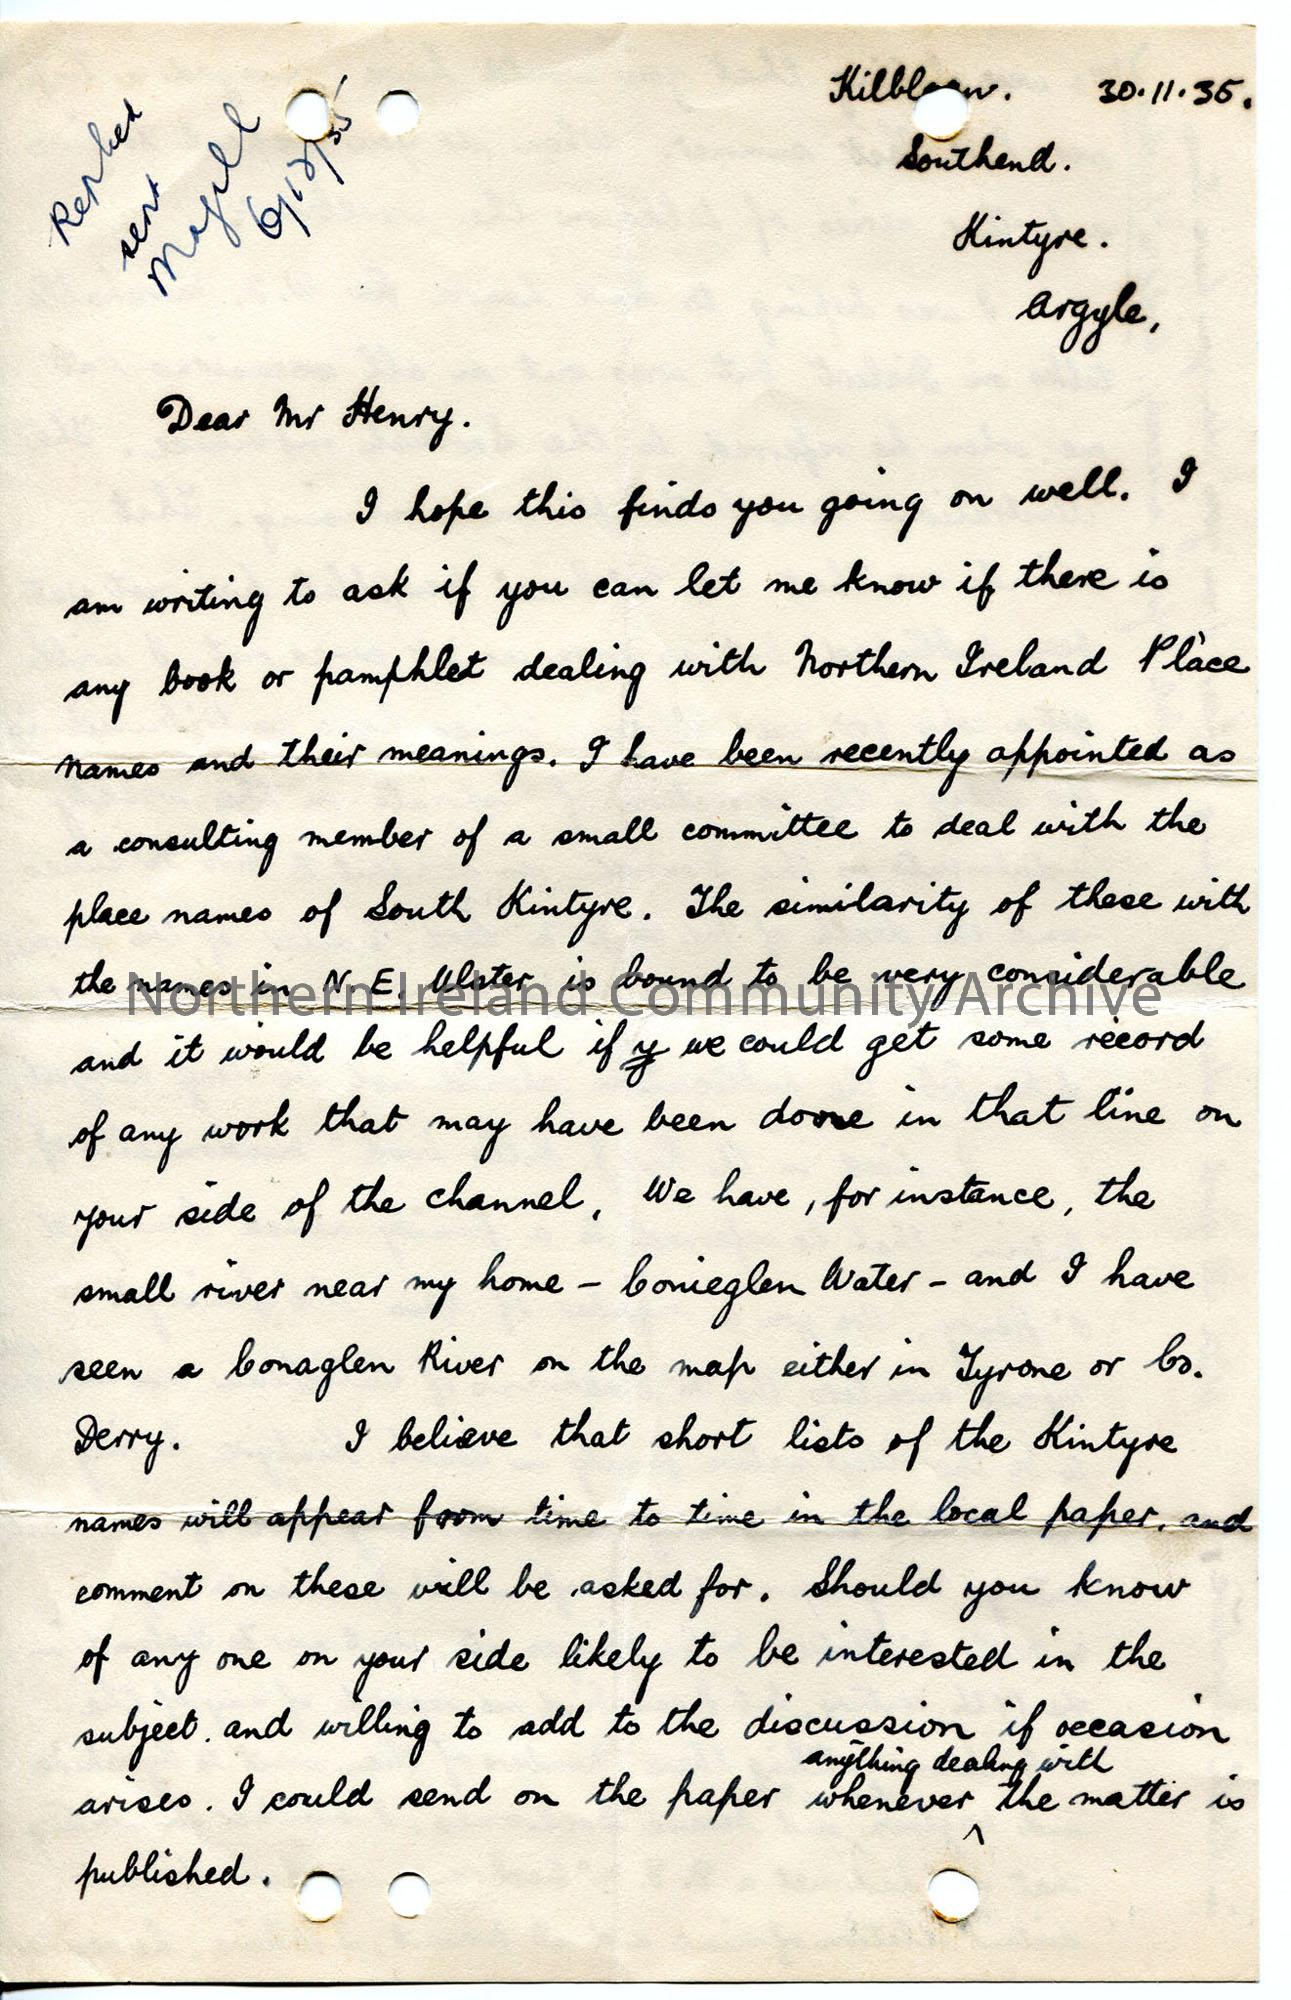 Replied
sent
Magill
6/12/35
30.11.35.
Southend.
Kintyre.
Argyle,
Dear Mr Henry.
I hope this finds you going on well. I
am writing to ask if you can let me know if there is
any book or pamphlet dealing with Northern Ireland Place
names and their meanings. I have been recently appointed as
a consulting member of a small committee to deal with the
place names of South Kintyre. The similarity of these with
the names in N. E. Ulster is bound to be very considerable
Northern Ireland Community Archive
and it would be helpful if y we could get some record
of any work that may have been done in that line on
your side of the channel. We have, for instance, the
small river near my home – Conieglen Water – and I have
seen a Conaglen River on the map either in Tyrone or Co.
Derry. I believe that short lists of the Kintyre
names will appear from time to time in the local paper, and
comment on these will be asked for. Should you know
of any one on your side likely to be interested in the
subject. and willing to add to the discussion if occasion
arises. I could send on the paper whenever anything dealing with the matter is
published.